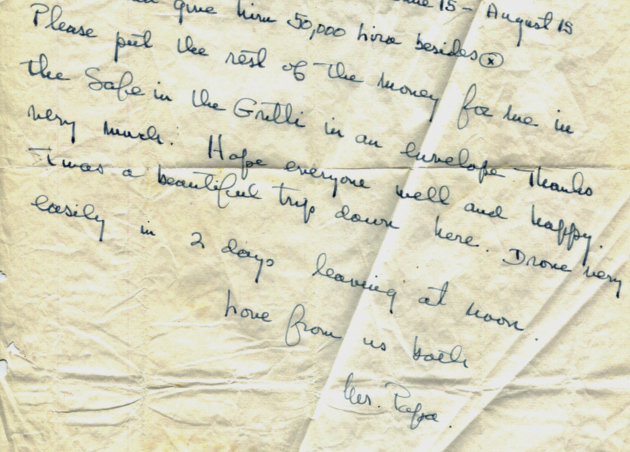 give him 50,000 lira besides ⓧ
15 - August 15
Please put the rest of the money for me in
the Safe in the Gritti in an envelope Thanks
very much. Hope everyone well and happy.
Twas a beautiful trip down here. Drove very
easily in 2 days leaving at noon.
Love from us both
Mr. Papa.